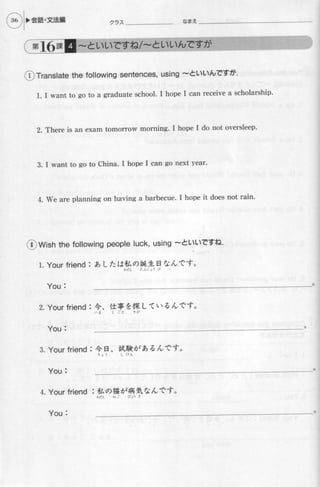 36 ▶会話・文法編 クラス なまえ
第16課 4 ～といいですね/～といいんですが
Ⅰ Translate the following sentences, using ～といいんですが.
1. I want to go to a graduate school. I hope I can receive a scholarship.
2. There is an exam tomorrow morning. I hope I do not oversleep.
3. I want to go to China. I hope I can go next year.
4. We are planning on having a barbecue. I hope it does not rain.
Ⅱ Wish the following people luck, using ～といいですね.
1. Your friend：あしたは私の誕生日なんです。
わたし たんじょうび
You： 。
2. Your friend：今、仕事を探しているんです。
いま しごと さが
You： 。
3. Your friend：今日、試験があるんです。
きょう しけん
You： 。
4. Your friend：私の猫が病気なんです。
わたし ねこ びょうき
You： 。